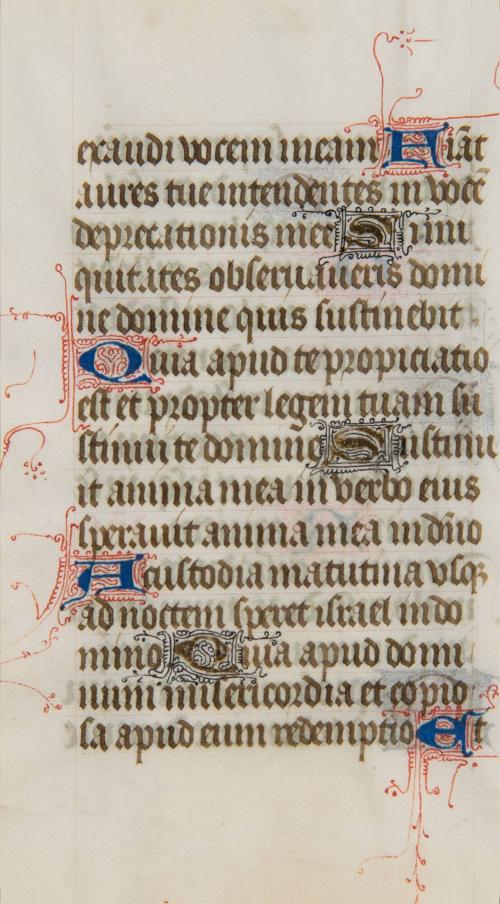 exaudi vocem meam Fiāt
aures tue intendentes in vocē
deprecationis mee Si ini
quitates observaueris domi
ne domine quis sustinebit
Quia apud te propiciatio
est et propter legem tuam su
stinui te domine Sustinu
it anima mea in verbo eius
sperauit anima mea in dño
A custodia matutina vsqꝫ
ad noctem speret israel in do
mino Quia apud domi
num misericordia et copio
sa apud eum redemptio Et